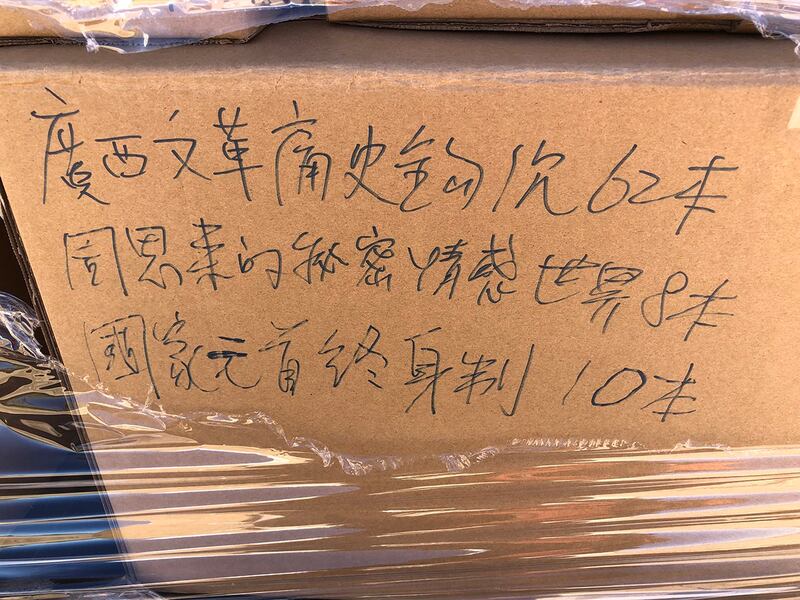 廣西文革痛史鈎沉 62本
周恩来的秘密情感世界 8本
國家元首终身制 10本